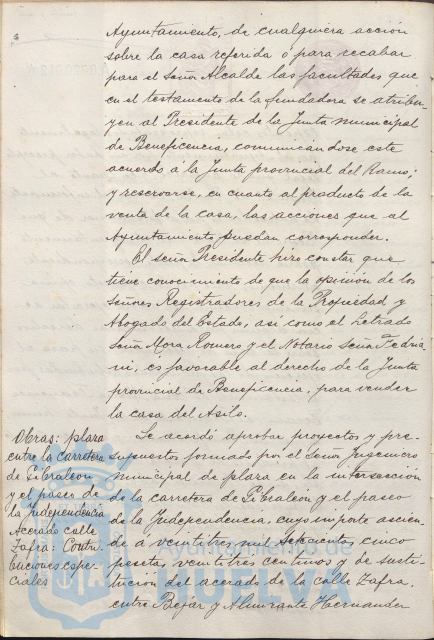 Ayuntamiento, de cualquiera acción
sobre la casa referida ó para recabar
para el Señor Alcalde las facultades que
en el testamento de la fundadora se atribu-
yen al Presidente de la Junta municipal
de Beneficencia, comunicandose este
acuerdo á la Junta provincial del Ramo;
y reservarse, en cuanto al producto de la
venta de la casa, las acciones que al
Ayuntamiento puedan corresponder.
El señor Presidente hizo constar que
tiene conocimiento de que la opinión de los
Señores Registradores de la Propiedad y
Abogado del Estado, así como el Letrado
Señor Mora Romero y el Notario Señor Cedria
ni, es favorable al derecho de la Junta
provincial de Beneficencia, para vender
la casa del Asilo.
Obras: plaza
entre la carretera
de Gibraleon
y el paseo de
la Independencia
Acerado calle
Zafra: Contri-
buciones espe-
ciales
Se acordó aprobar proyectos y pre-
supuestos formado por el Señor Ingeniero
municipal de plaza en la intersección
de la carretera de Gibraleón y el paseo
de la Independencia, cuyo importe ascien-
de á veintitres mil setecientos cinco
pesetas veintitres centimos y de susti-
tución del acerado de la calle Zafra,
entre Bejar y Almirante Hernandez
Ayuntamiento de
HUELVA